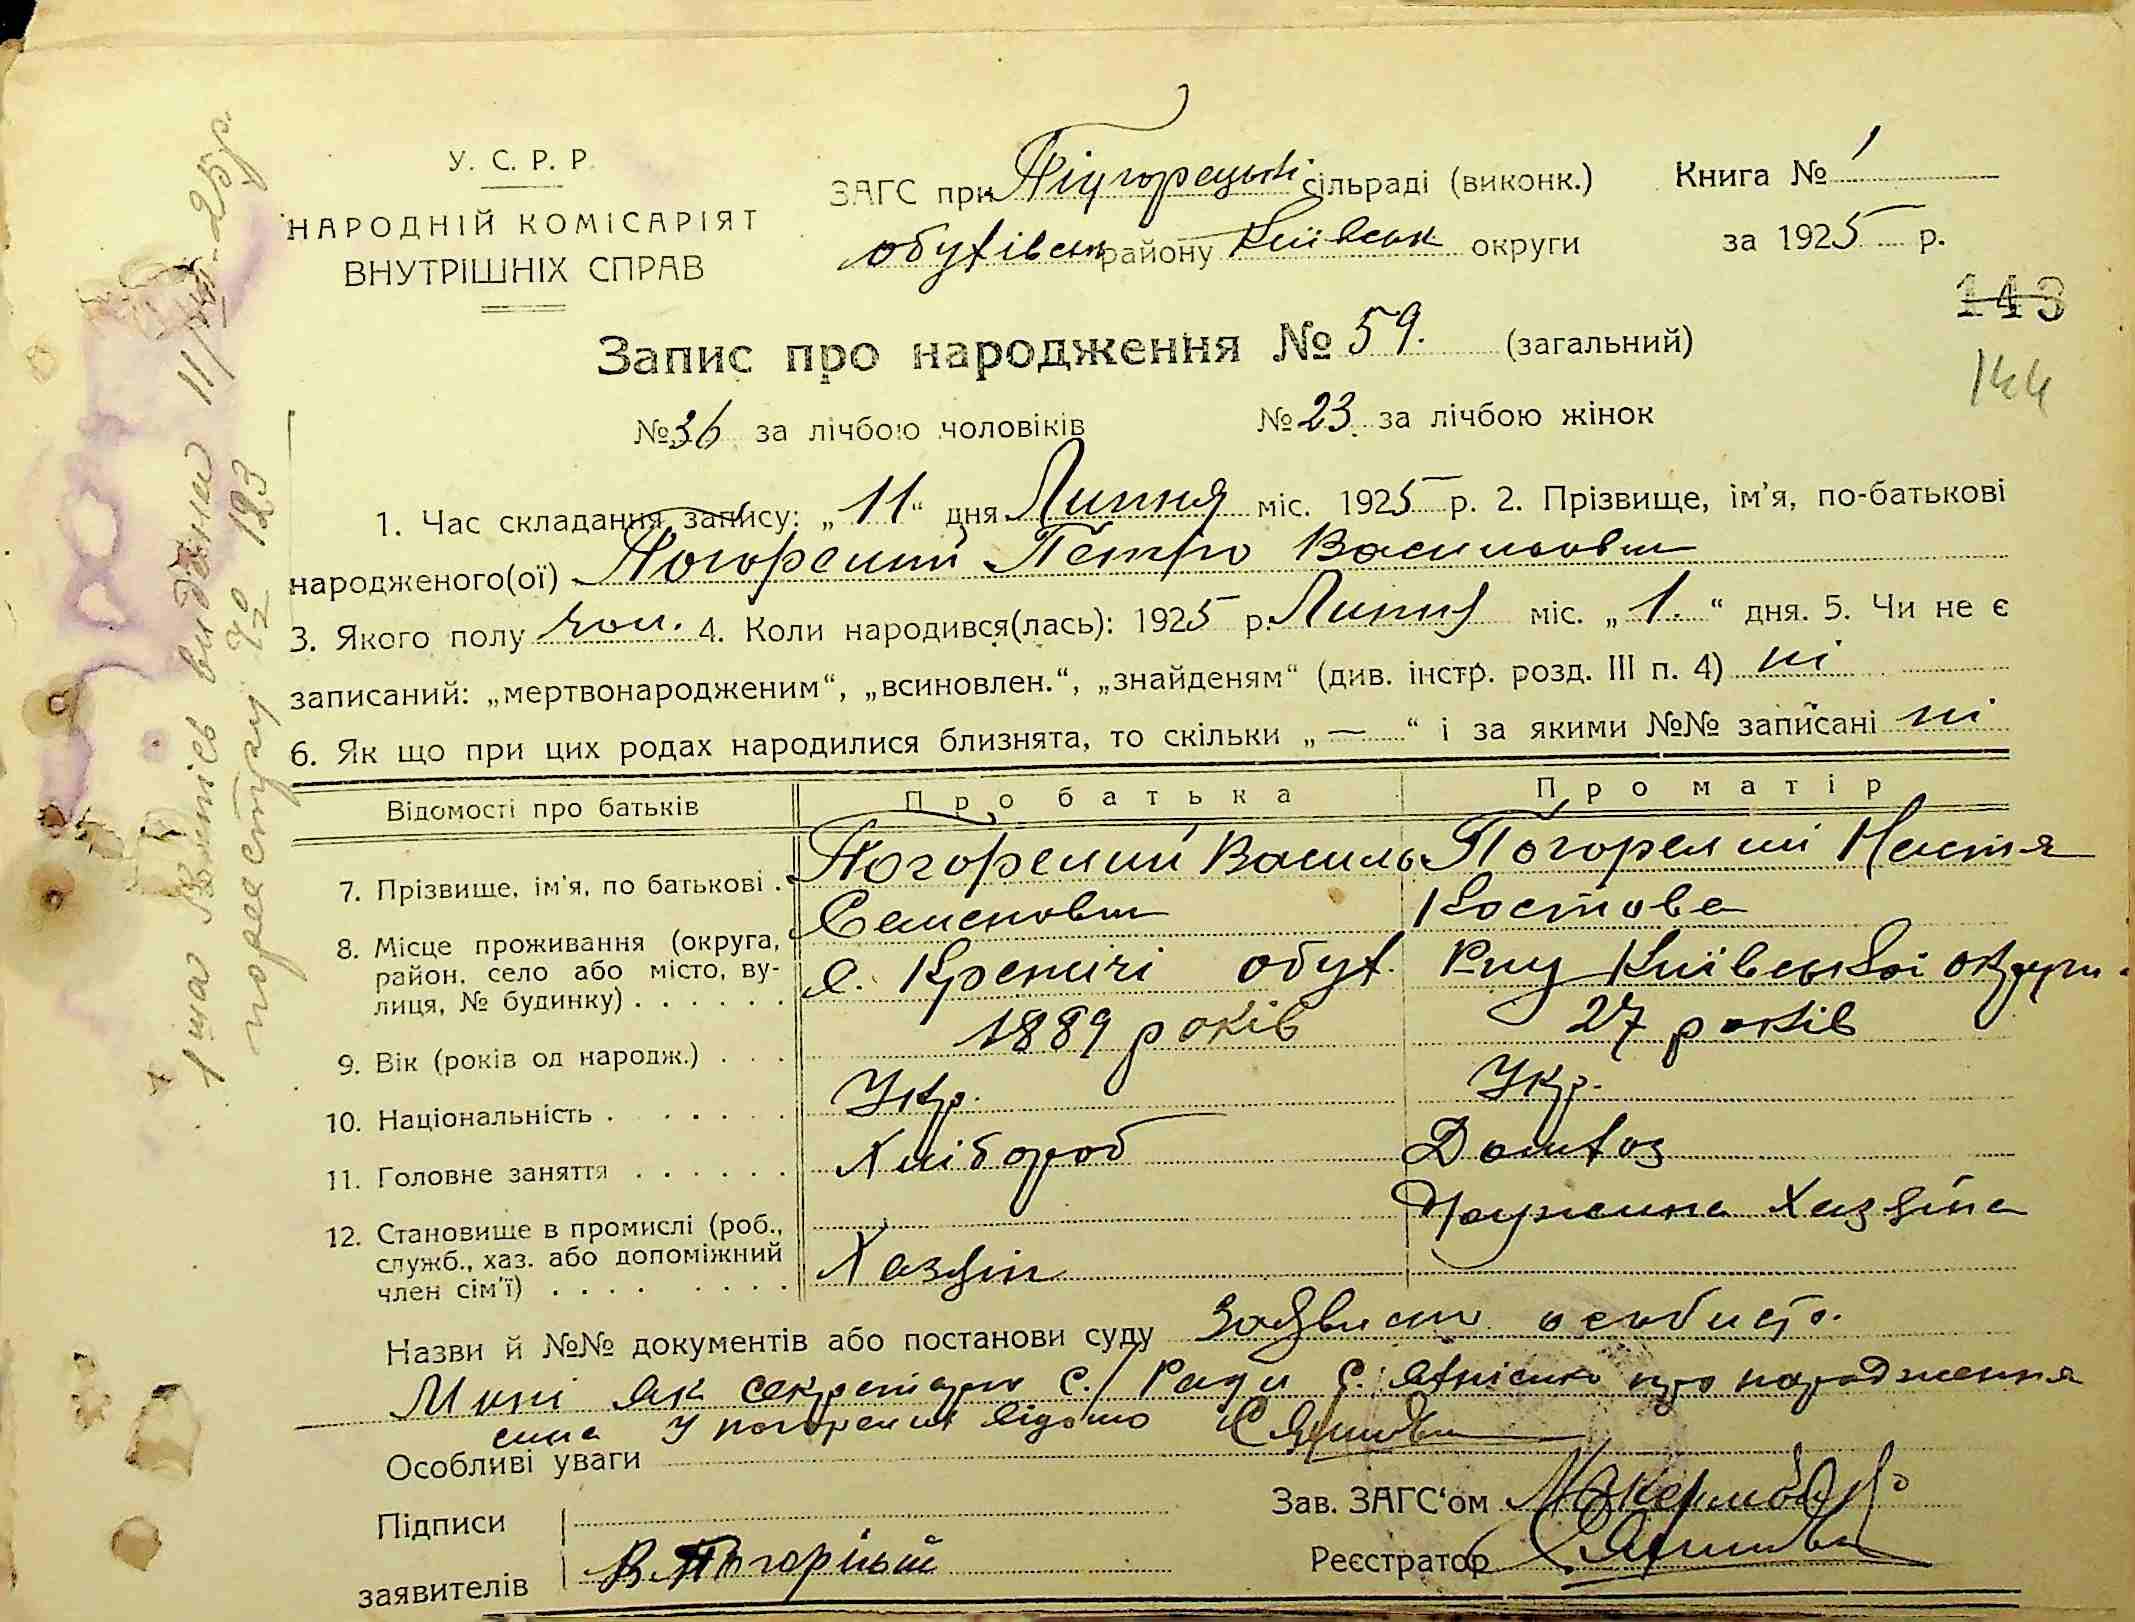 У. С. Р. Р.
НАРОДНІЙ КОМІСАРІЯТ
ВНУТРІШНІХ СПРАВ
ЗАГС при Підгорецькі сільраді (виконк.)
Обухівськ району Київськ округи
Книга № 1
за 1925 р.
143
144
Запис про народження № 59. (загальний)
№ 36 за лічбою чоловіків № 23. за лічбою жінок
1. Час складання запису: „11“ дня Липня міс. 1925 р. 2. Прізвище, ім'я, по-батькові
народженого(ої) Погорелий Петро Васильови
3. Якого полу чол. 4. Коли народився(лась): 1925 р. Липня міс. „1.“ дня. 5. Чи не є
записаний: „мертвонародженим“, „всиновлен.“, „знайденям“ (див. інстр. розд. III п. 4) ні
6. Як що при цих родах народилися близнята, то скільки „—“ і за якими №№ записані ні
Відомості про батьків Про батька Про матір
7. Прізвище, ім'я, по батькові . Погорелий Василь Семенови Погорелий Настя Костова
8. Місце проживання (округа, район, село або місто, вулиця, № будинку) . . . . . . с. Кренічі обух. р-ну Київської округи
9. Вік (років од народж.) . . . 1889 років 27 років
10. Національність . . . . . . . Укр. Укр.
11. Головне заняття . . . . . . Хлібороб Домхоз
12. Становище в промислі (роб., служб., хаз. або допоміжний член сім'ї) . . . . . . . . Хазяїн Дружина Хазяїна
Назви й №№ документів або постанови суду Заявлено особисто.
Мині як секретарю с/Ради про народження
сина у Погорелий відомо
Особливі уваги
Підписи
заявителів В. Погорілий
Зав. ЗАГС'ом
Реєстратор
видана 11/VII-25р.
по реестру № 123